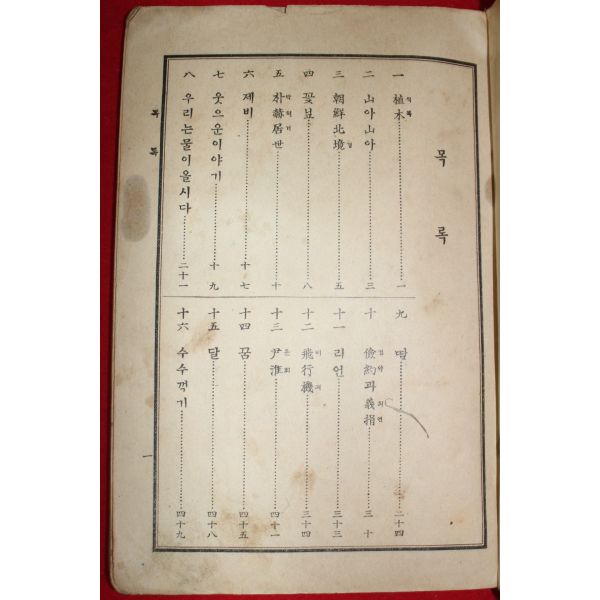 목록
一 植木 식목 一
二 山아山아 三
三 朝鮮北境 경 五
四 꽃닢 八
五 朴赫居世 박혁거 十
六 제비 十七
七 웃으운이야기 十九
八 우리는물이올시다 二十一
九 딸 二十四
十 儉約과義捐 검약 의연 三十
十一 리언 三十三
十二 飛行機 비 긔 三十四
十三 尹淮 윤회 四十一
十四 꿈 四十五
十五 달 四十八
十六 수수꺽기 四十九
목록
一